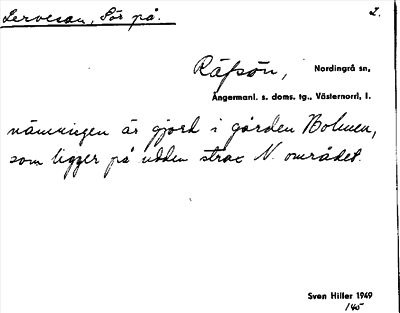 Lervesan, Sör på. 2.
Räfsön, Nordingrå sn,
Ångermanl. s. doms. tg., Västernorrl. l.
nämningen är gjord i gården Bolmen,
som ligger på udden strax N. området.
Sven Hiller 1949
145